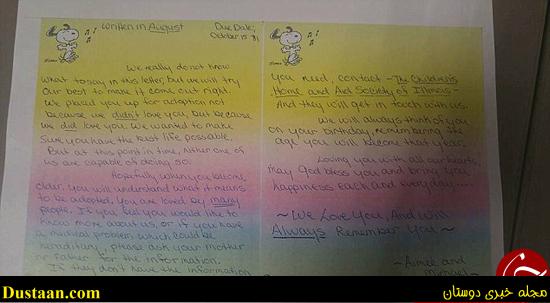 Written in August
Due Date:
October 15 '81
We really do not know
what to say in this letter, but we will try
our best to make it come out right.
We placed you up for adoption not
because we didn't love you, but because
we did love you. We wanted to make
sure you have the best life possible.
But as this point in time, nither one of
us are capable of doing so.
Hopefully when you become
older, you will understand what it means
to be adopted. You are loved by many
people. If you feel you would like to
know more about us, or if you have
a medical problem which could be
hereditary, please ask your mother
or Father for the information.
If they don't have the information
you need, contact - The Children's
Home and Aid Society of Illinois -
And they will get in touch with us.
We will always think of you
on your birthday, remembering the
age you will become that year.
Loving you with all our hearts,
may God bless you and bring you
happiness each and everyday....
~We Love You, And Will
Always Remember You~
~Aimee and
Michael~
Dustaan.com
مجله خبری دوستان